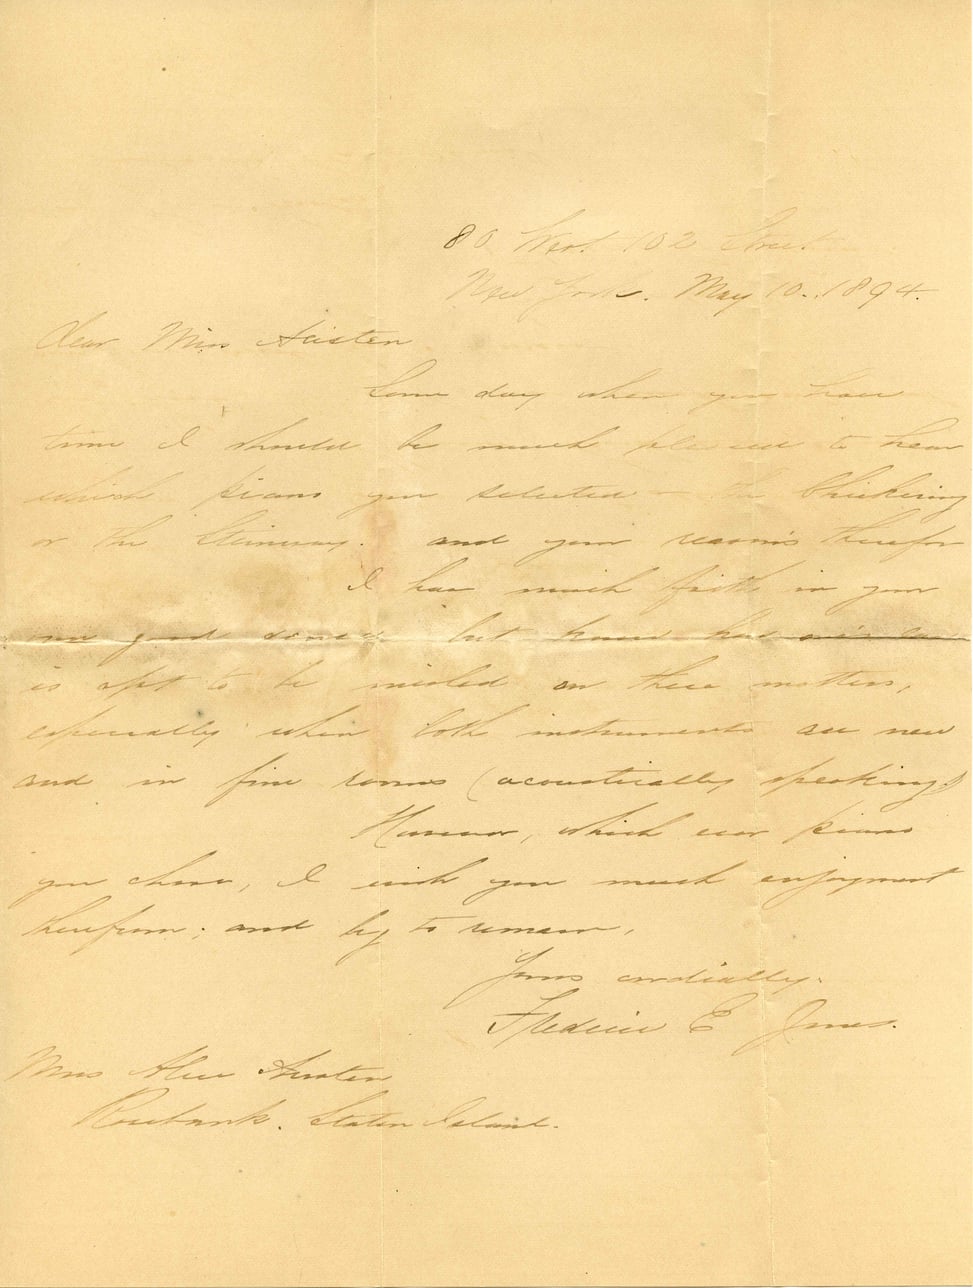 80 West 102 Street
New York. May 10. 1894.
Dear Miss Austen
Some day when you have
time I should be much pleased to hear
which piano you selected — the Chickering
or the Steinway. and your reasons therefor
I have much faith in your
good but know
is apt to be misled on these matters,
especially when both instruments are new
and in fine rooms (acoustically speaking)
However, which ever piano
you chose, I wish you much enjoyment
therefrom; and beg to remain,
Yours cordially.
Frederic E Jones.
Miss Alice Austen
Rosebank. Staten Island.